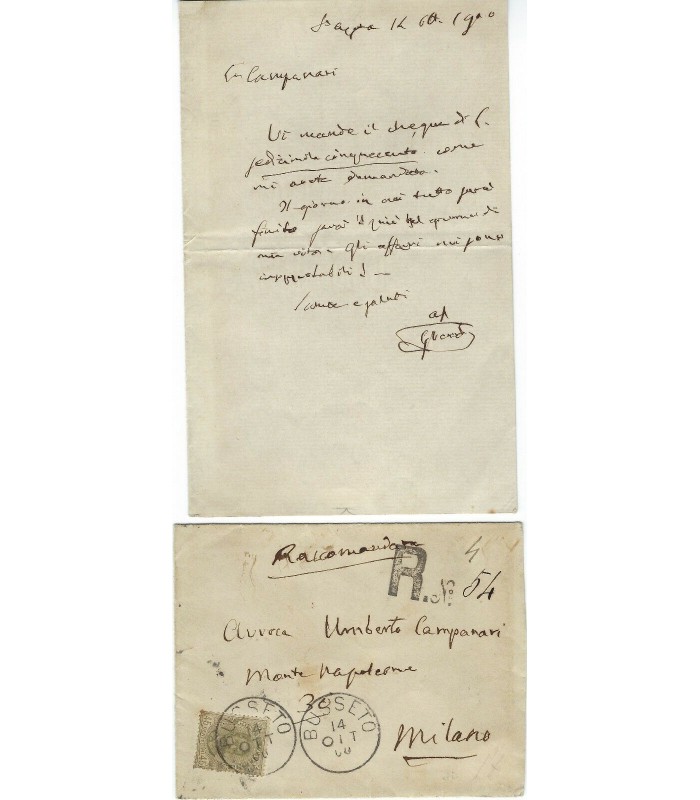 S. Agata 14 Ott. 1900
Campanari
Vi mando il chèque di L.
sedicimila cinquecento come
mi avete domandato.
Il giorno in cui tutto sarà
finito sarà il più bel giorno di
mia vita. Gli affari mi sono
insopportabili! —
Saluti
G Verdi
Raccomandata
4
R. No. 54
Avvoca Umberto Campanari
Monte Napoleone
BUSSETO
14
OTT
00
BUSSETO
14
OTT
00
Milano